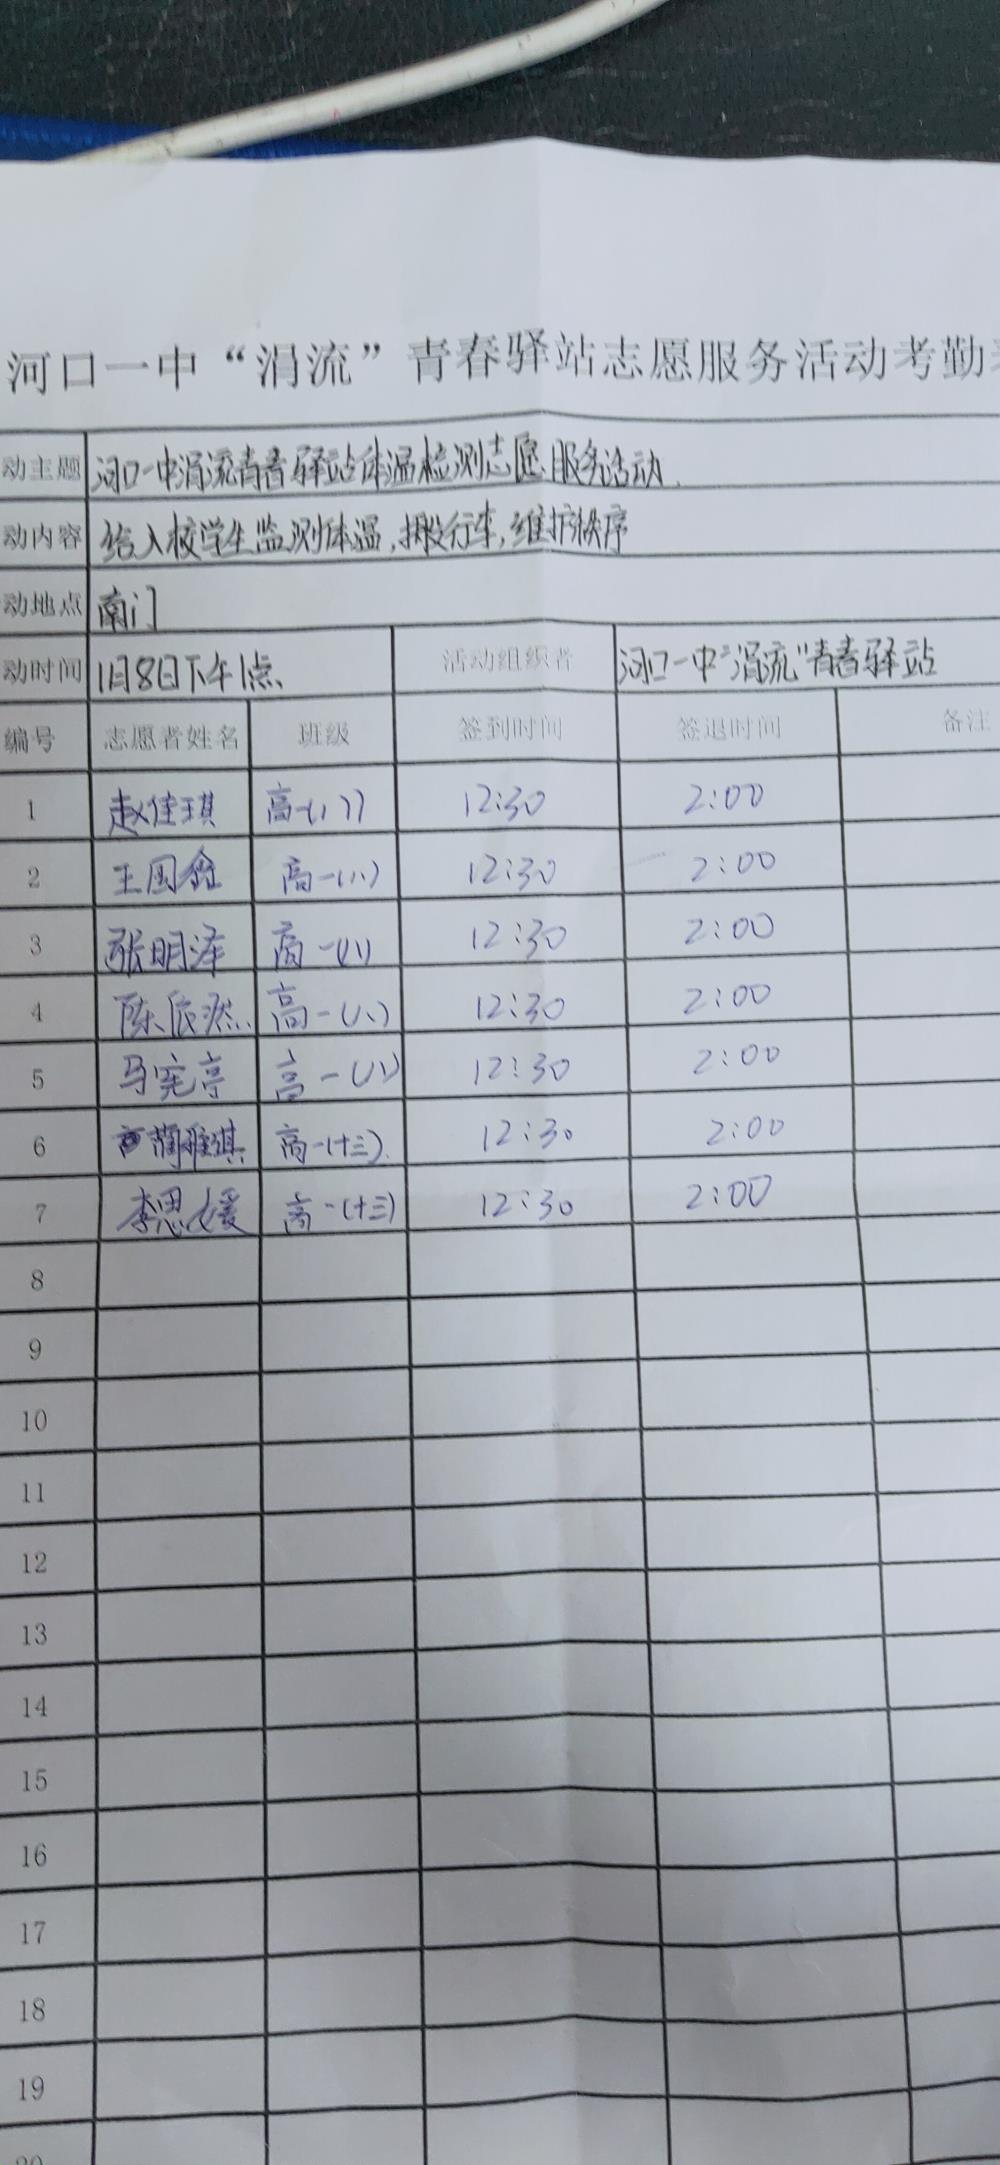 河口一中“涓流”青春驿站志愿服务活动考勤
动主题 河口一中涓流青春驿站体温检测志愿服务活动
动内容 给入校学生监测体温,搬行车,维护秩序
动地点 南门
动时间 1月8日下午1点 活动组织者 河口一中“涓流”青春驿站
编号 志愿者姓名 班级 签到时间 签退时间 备注
1 赵佳琪 高一 12:30 2:00
2 王国鑫 高一(八) 12:30 2:00
3 张明泽 高一 12:30 2:00
4 陈辰燃 高一(八) 12:30 2:00
5 马宪亭 高一(八) 12:30 2:00
6 蔺雅琪 高一(十三) 12:30 2:00
7 李思媛 高一(十三) 12:30 2:00
8
9
10
11
12
13
14
15
16
17
18
19